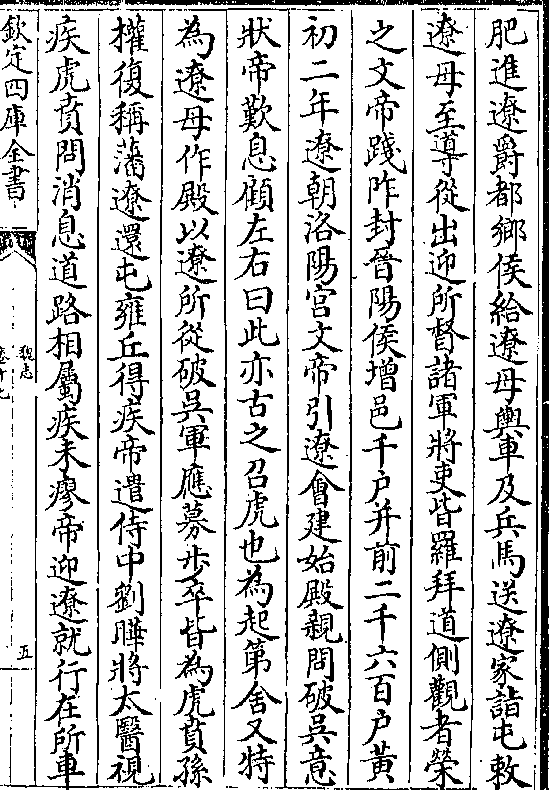 肥進遼爵都鄉侯給遼母輿車及兵馬送遼家詣屯敕
遼母至導從出迎所督諸軍將吏皆羅拜道側觀者榮
之文帝踐阼封晉陽侯增邑千户并前二千六百户黃
初二年遼朝洛陽宮文帝引遼會建始殿親問破吳意
狀帝歎息顧左右曰此亦古之召虎也為起第舍又特
為遼母作殿以遼所從破吳軍應募步卒皆為虎賁孫
權復稱藩遼還屯雍丘得疾帝遣侍中劉曄將太醫視
疾虎賁問消息道路相屬疾未瘳帝迎遼就行在所車
欽定四庫全書
魏志
卷十七
五